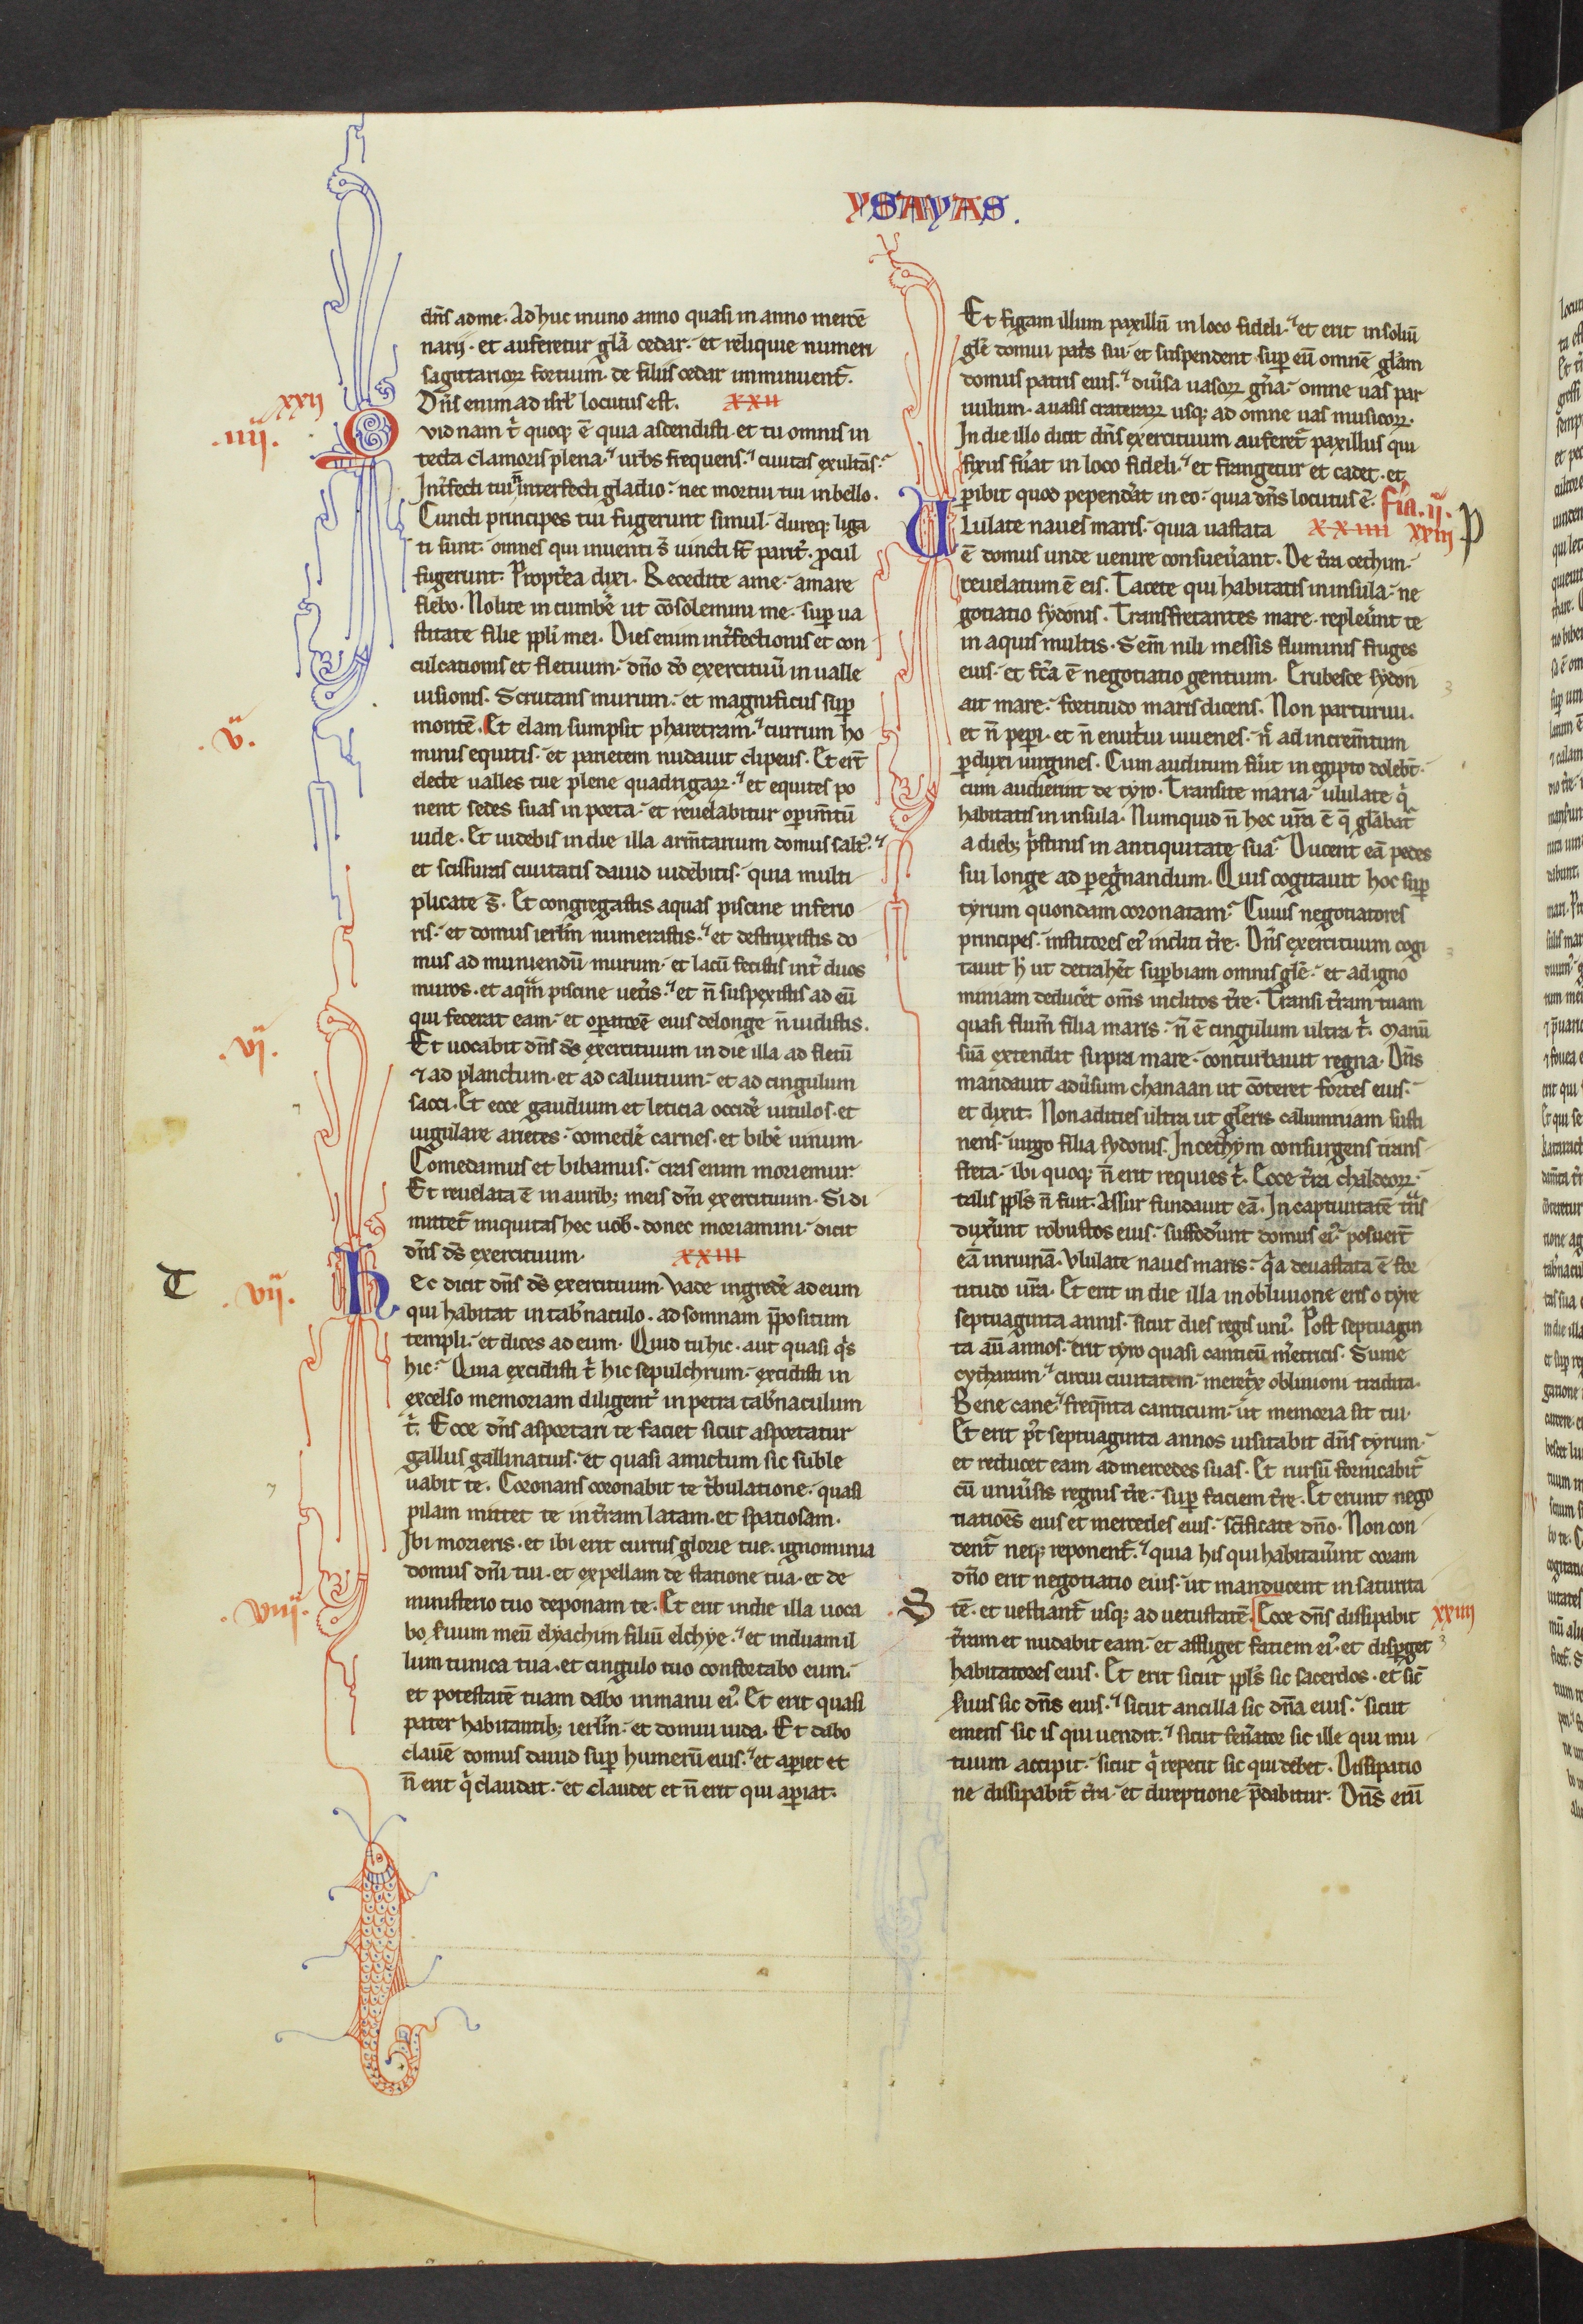 YSAYAS.
dn̄s ad me. Ad huc in uno anno quasi in anno mercē
narij. et auferetur gl̄a cedar. et reliquie numeri
sagittarioꝝ fortium de filiis cedar imminuent᷑.
Dn̄s enim ad isrl̄ locutus est. XXII
xxij
.iiij.
Qvid nam t̄ quoqꝫ ē quia ascendisti et tu omnis in
tecta clamoris plena. urbs frequens. ciuitas exultās.
Int̄fecti tui n̄ interfecti gladio. nec mortui tui in bello.
Cuncti principes tui fugerunt simul. dureqꝫ liga
ti sunt. omnes qui inuenti s̄ uincti st̄ parit̄. procul
fugerunt. Propt̄ea dixi. Recedite a me. amare
flebo. Nolite incumbe᷑ ut cōsolemini me. suꝑ ua
stitate filie ppl̄i mei. Dies enim int̄fectionis et con
culcationis et fletuum. dn̄o dō exercituū in ualle
uisionis. Scrutans murum. et magnificus suꝑ
.v.
montē. Et elam sumpsit pharetram. currum ho
minis equitis. et parietem nudauit clipeus. Et er̄t
electe ualles tue plene quadrigaꝝ. et equites po
nent sedes suas in porta. et reuelabitur oꝑim̄tū
iude. Et uidebis in die illa arm̄tarium domus salt᷑.
et scissuras ciuitatis dauid uidebitis. quia multi
plicate s̄. Et congregastis aquas piscine inferio
ris. et domus ierlm̄ numerastis. et destruxistis do
mus ad muniendū murum. et lacū fecistis int̄ duos
muros. et aqm̄ piscine uet̄is. et n̄ suspexistis ad eū
qui fecerat eam. et oꝑatorē eius delonge n̄ uidistis.
.vi.
Et uocabit dn̄s ds̄ exercituum in die illa ad fletū
⁊ ad planctum. et ad caluitium. et ad cingulum
sacci. Et ecce gaudium et leticia occide᷑ uitulos. et
iugulare arietes. comede᷑ carnes. et bibe᷑ uinum.
Comedamus et bibamus. cras enim moriemur.
Et reuelata ē in auribꝫ meis dn̄i exercituum. Si di
mittet᷑ iniquitas hec uob̄. donec moriamini. dicit
dn̄s ds̄ exercituum. XXIII
T .vij.
Hec dicit dn̄s ds̄ exercituum. Vade ingrede᷑ ad eum
qui habitat in tab̄naculo. ad somnam p̄positum
templi. et dices ad eum. Quid tu hic. aut quasi qͥs
hic. Quia excidisti t̄ hic sepulchrum. excidisti in
excelso memoriam diligent᷑ in petra tab̄naculum
t̄. Ecce dn̄s asportari te faciet sicut asportatur
gallus gallinatius. et quasi amictum sic suble
uabit te. Coronans coronabit te t̄bulatione. quasi
pilam mittet te in t̄ram latam. et spatiosam.
Ibi morieris. et ibi erit currus glorie tue. ignominia
domus dn̄i tui. et expellam de statione tua. et de
.viij.
ministerio tuo deponam te. Et erit in die illa uoca
bo s̄uum meū elyachim filiū elchye. et induam il
lum tunica tua. et cingulo tuo confortabo eum.
et potestatē tuam dabo in manu eiꝰ. Et erit quasi
pater habitantibꝫ ierlm̄. et domui iuda. Et dabo
clauē domus dauid suꝑ humerū eius. et aꝑiet et
n̄ erit qͥ claudat. et claudet et n̄ erit qui aꝑiat.
Et figam illum paxillū in loco fideli. et erit in soliū
gl̄e domui pat̄s sui. et suspendent suꝑ eū omnē gl̄am
domus patris eius. diu̅sa uasoꝝ gn̄a. omne uas par
uulum. a uasis crateraꝝ usqꝫ ad omne uas musicoꝝ.
In die illo dicit dn̄s exercituum auferet᷑ paxillus qui
fixus fūat in loco fideli. et frangetur et cadet. et
ꝑibit quod pependāt in eo. quia dn̄s locutus ē. fīa. ij.
Ululate naues maris. quia uastata XXIIII xxiij P
ē domus unde uenire consueūant. De t̄ra cethim.
reuelatum ē eis. Tacete qui habitatis in insula. ne
gotiatio sydonis. Transfretantes mare. repleūnt te
in aquis multis. Sem̄ nili messis fluminis fruges
eius. et fc̄a ē negotiatio gentium. Erubesce sydon
ait mare. fortitudo maris dicens. Non parturiui.
et n̄ peꝑi. et n̄ enut̄ui iuuenes. n̄ ad increm̄tum
ꝑduxi uirgines. Cum auditum fūit in egipto dolebt̄.
cum audierint de tyro. Transite maria. ululate qͥ
habitatis in insula. Numquid n̄ hec ur̄a ē q̄ gl̄abat᷑
a diebꝫ pͥstinis in antiquitate sua. Ducent eā pedes
sui longe ad ꝑegͥnandum. Quis cogitauit hoc suꝑ
tyrum quondam coronatam. Cuius negotiatores
principes. institores eiꝰ incliti t̄re. Dn̄s exercituum cogi
tauit h̄ ut detrahe᷑t suꝑbiam omnis gl̄e. et ad igno
miniam deduce᷑t om̄s inclitos t̄re. Transi t̄ram tuam
quasi flum̄ filia maris. n̄ ē cingulum ultra t̄. Manū
suā extendit supra mare. conturbauit regna. Dn̄s
mandauit adūsum chanaan ut cōteret fortes eius.
et dixit. Non adities ultra ut gl̄eris calumniam susti
nens. uirgo filia sydonis. In cethym consurgens trans
freta. ibi quoqꝫ n̄ erit requies t̄. Ecce t̄ra chaldeoꝝ.
talis ppl̄s n̄ fuit. Assur fundauit eā. In captiuitatē
duxūnt robustos eius. suffodūnt domus eiꝰ. posuer̄t
eā in ruinā. Vlulate naues maris. qͥa deuastata ē for
titudo ur̄a. Et erit in die illa in obliuione eris o tyre
septuaginta annis. sicut dies regis uniꝰ. Post septuagin
ta aū annos. erit tyro quasi canticū m̄etricis. Sume
cytharam. circui ciuitatem. meretͥx obliuioni tradita.
Bene cane. freqn̄ta canticum. ut memoria sit tui.
Et erit p̄t septuaginta annos uisitabit dn̄s tyrum.
et reducet eam ad mercedes suas. Et rursū fornicabit᷑
cū uniūsis regnis t̄re. suꝑ faciem t̄re. Et erunt nego
tiatiōes eius et mercedes eius. scīficate dn̄o. Non con
dent᷑ neqꝫ reponent᷑. quia his qui habitaūint coram
dn̄o erit negotiatio eius. ut manducent in saturita
S tē. et uestiant᷑ usqꝫ ad uetustatē. Ecce dn̄s dissipabit xxiiij
t̄ram et nudabit eam. et affliget faciem eiꝰ. et disꝑget
habitatores eius. Et erit sicut ppl̄s sic sacerdos. et sic̄
s̄uus sic dn̄s eius. sicut ancilla sic dn̄a eius. sicut
emens sic is qui uendit. sicut fen̄ator sic ille qui mu
tuum accipit. sicut qͥ repetit sic qui debet. Dissipatio
ne dissipabit᷑ t̄ra. et direptione p̄dabitur. Dn̄s eni̅